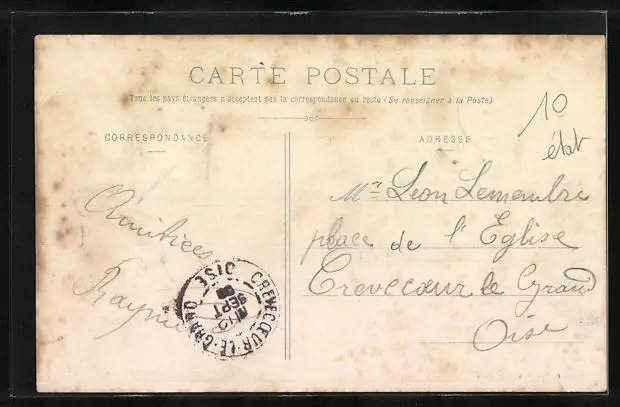 CARTE POSTALE
Tous les pays étrangers n'acceptent pas la correspondance au recto (Se renseigner à la Poste)
CORRESPONDANCE
ADRESSE
10
état
Amitiées
Raym
Mr Léon Lemembre
place de l'Eglise
Crevecœur le Grand
Oise
CREVECŒUR-LE-GRAND OISE
SEPT